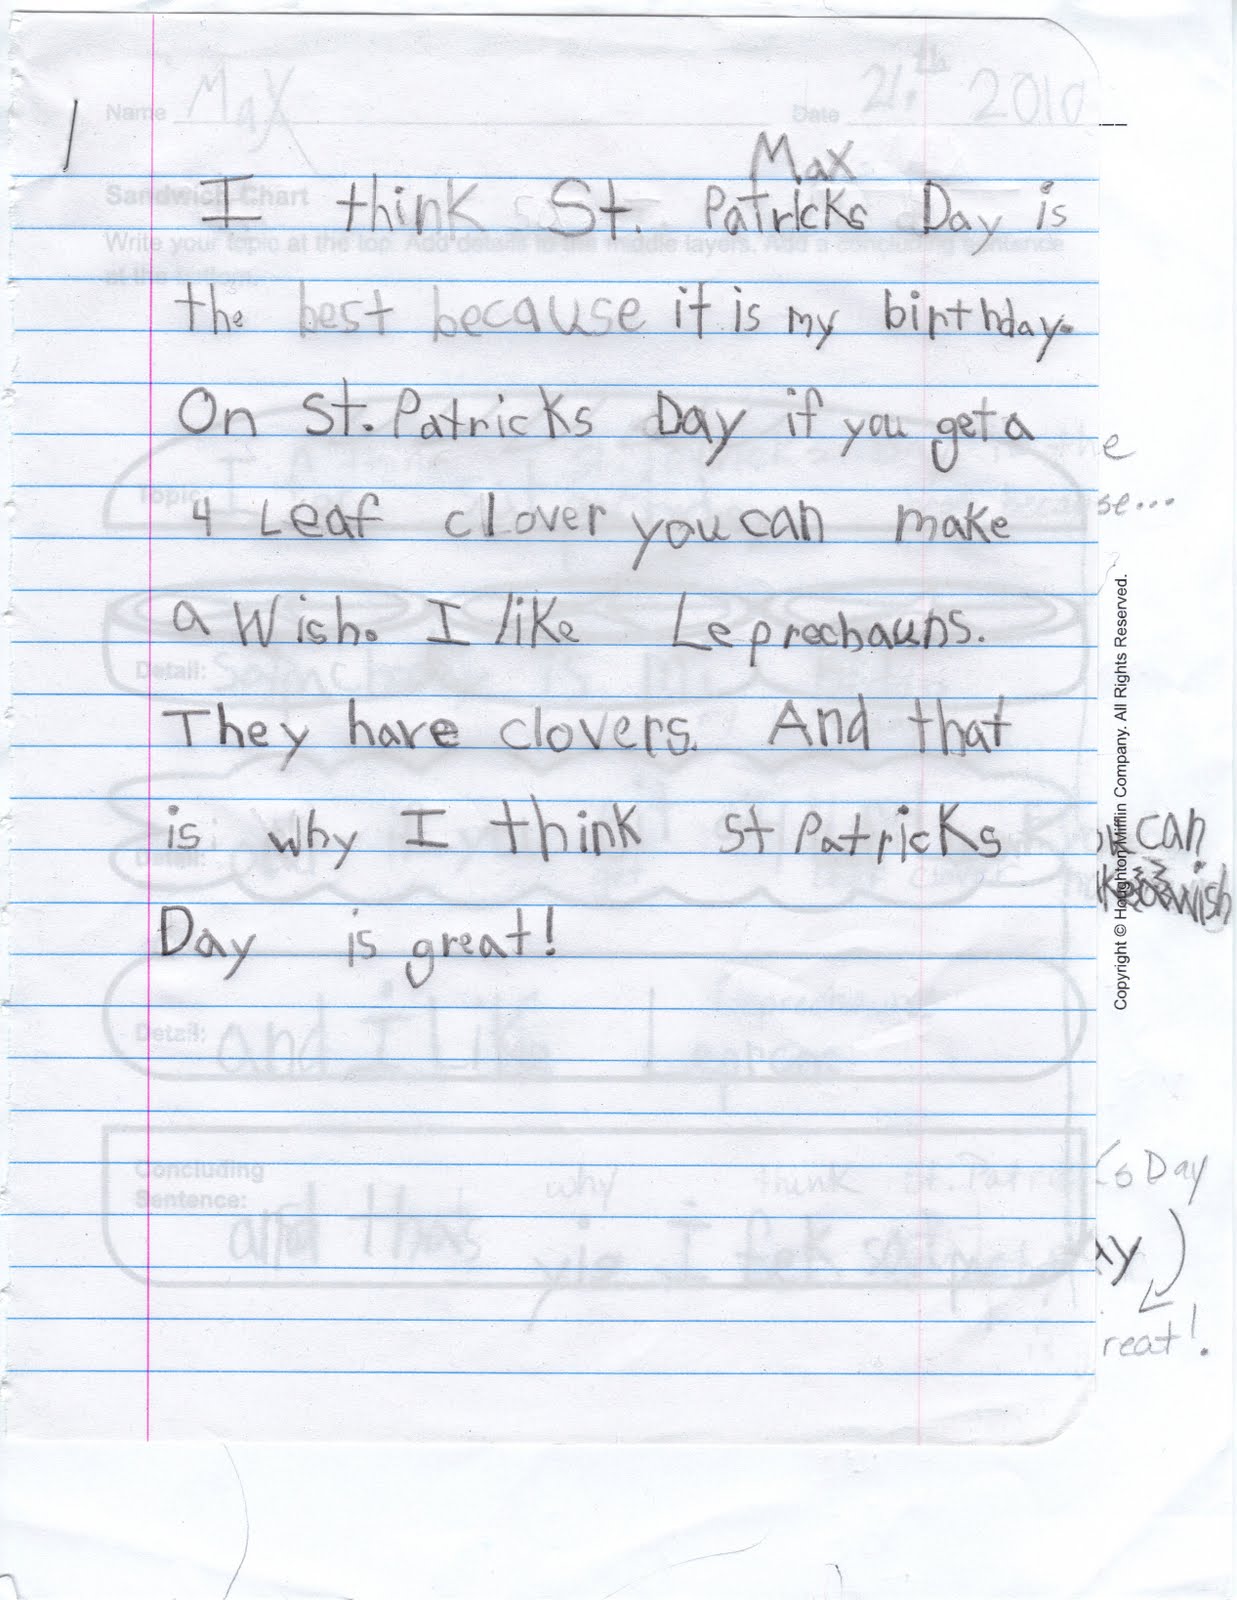 Name Max Date 21.th 2010
Max
I think St. Patricks Day is
Sandwich Chart
Write your topic at the top. Add details to the middle layers. Add a concluding sentence
at the bottom.
the best because it is my birthday.
On St. Patricks Day if you get a
e
4 Leaf clover you can make
Topic: I
se...
a Wish. I like Leprechauns.
Detail:
They have clovers. And that
is why I think st Patricks
can
Detail:
wish
Day is great!
Detail: and I Like Leprechauns
Copyright © Houghton Mifflin Company. All Rights Reserved.
Concluding
Sentence: and thas
why think st. Patricks Day
ay
reat!